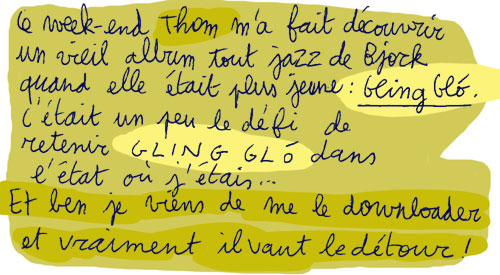 Ce week-end Thom m'a fait découvrir
un vieil album tout jazz de Bjork
quand elle était plus jeune : Gling Gló.
C'était un peu le défi de
retenir GLING GLÓ dans
l'état où j'étais...
Et ben je viens de me le downloader
et vraiment il vaut le détour !